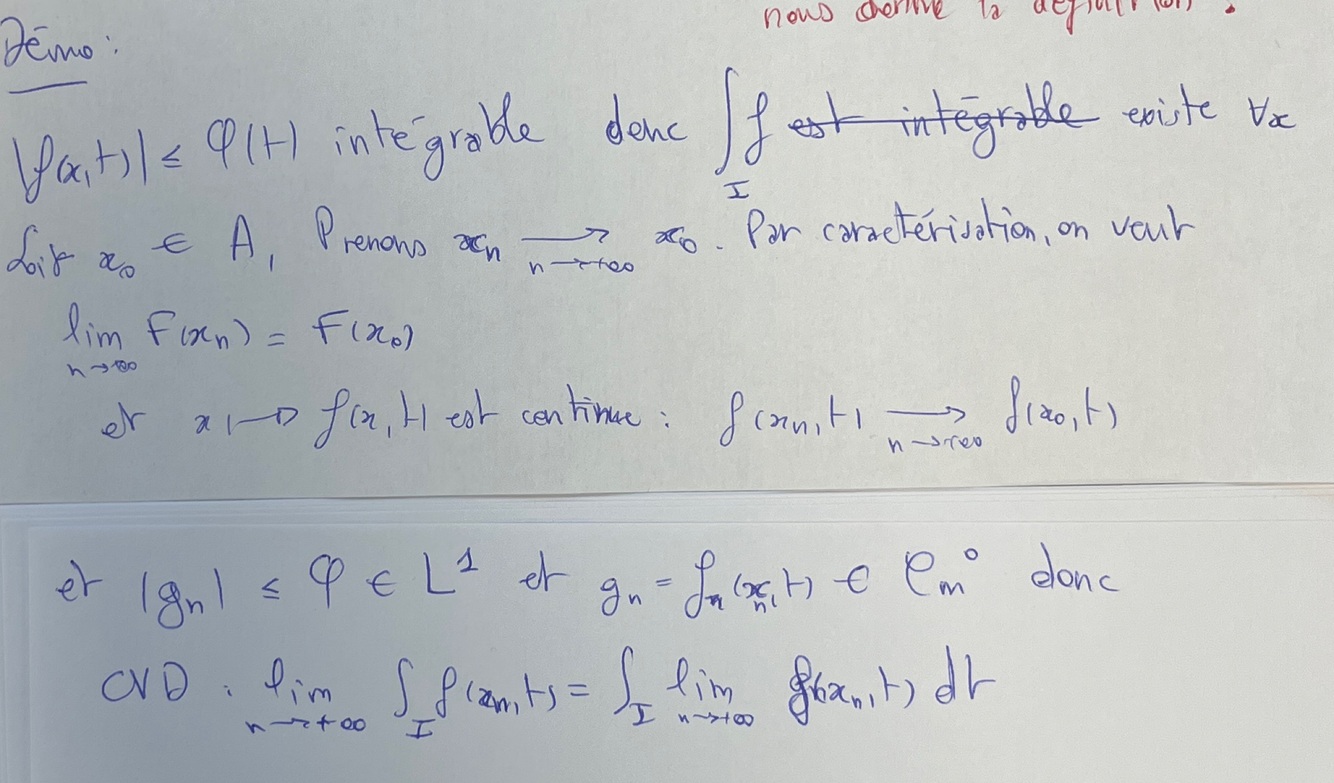 nous donne la définition.
Démo :
|f(x,t)| ≤ φ(t) intégrable donc ∫_I f ~~est intégrable~~ existe ∀x
Soit x₀ ∈ A, Prenons xₙ ⟶_{n→+∞} x₀. Par caractérisation, on veut
lim_{n→+∞} F(xₙ) = F(x₀)
et x ↦ f(x,t) est continue : f(xₙ,t) ⟶_{n→+∞} f(x₀,t)
et |gₙ| ≤ φ ∈ L¹ et gₙ = fₙ(xₙ,t) ∈ 𝒞ₘ⁰ donc
CVD : lim_{n→+∞} ∫_I f(xₙ,t) = ∫_I lim_{n→+∞} f(xₙ,t) dt